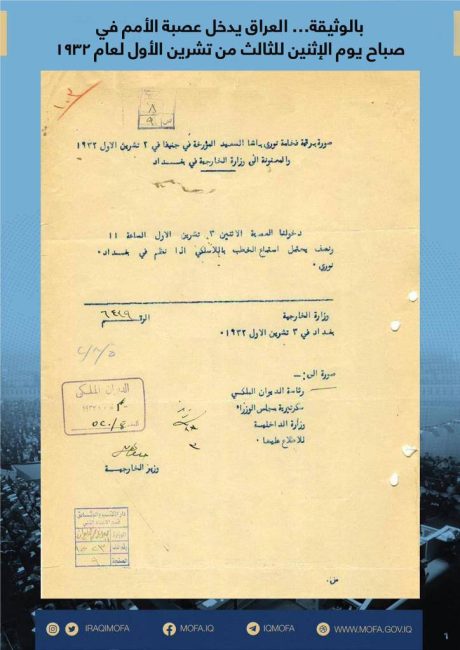 بالوثيقة... العراق يدخل عصبة الأمم في
صباح يوم الإثنين للثالث من تشرين الأول لعام ١٩٣٢
١٠٣
٨
٩
صورة برقية فخامة نوري باشا السعيد المؤرخة في جنيف في ٢ تشرين الاول ١٩٣٢
والمعنونة الى وزارة الخارجية في بغداد
دخولنا العصبة الاثنين ٣ تشرين الاول الساعة ١١
ونصف يحتمل استماع الخطب باللاسلكي اذا نظم في بغداد.
نوري.
وزارة الخارجية
الرقم ٦٤٢٩
بغداد في ٣ تشرين الاول ١٩٣٢.
صورة الى:-
رئاسة الديوان الملكي
سكرتيرية مجلس الوزراء
وزارة الداخلية
للاطلاع عليها.
الديوان الملكي
وزير الخارجية
دار الكتب والوثائق
الوزارة
رقم الملف
الصفحة ٩
IRAQIMOFA
MOFA.IQ
IQMOFA
WWW.MOFA.GOV.IQ
٦